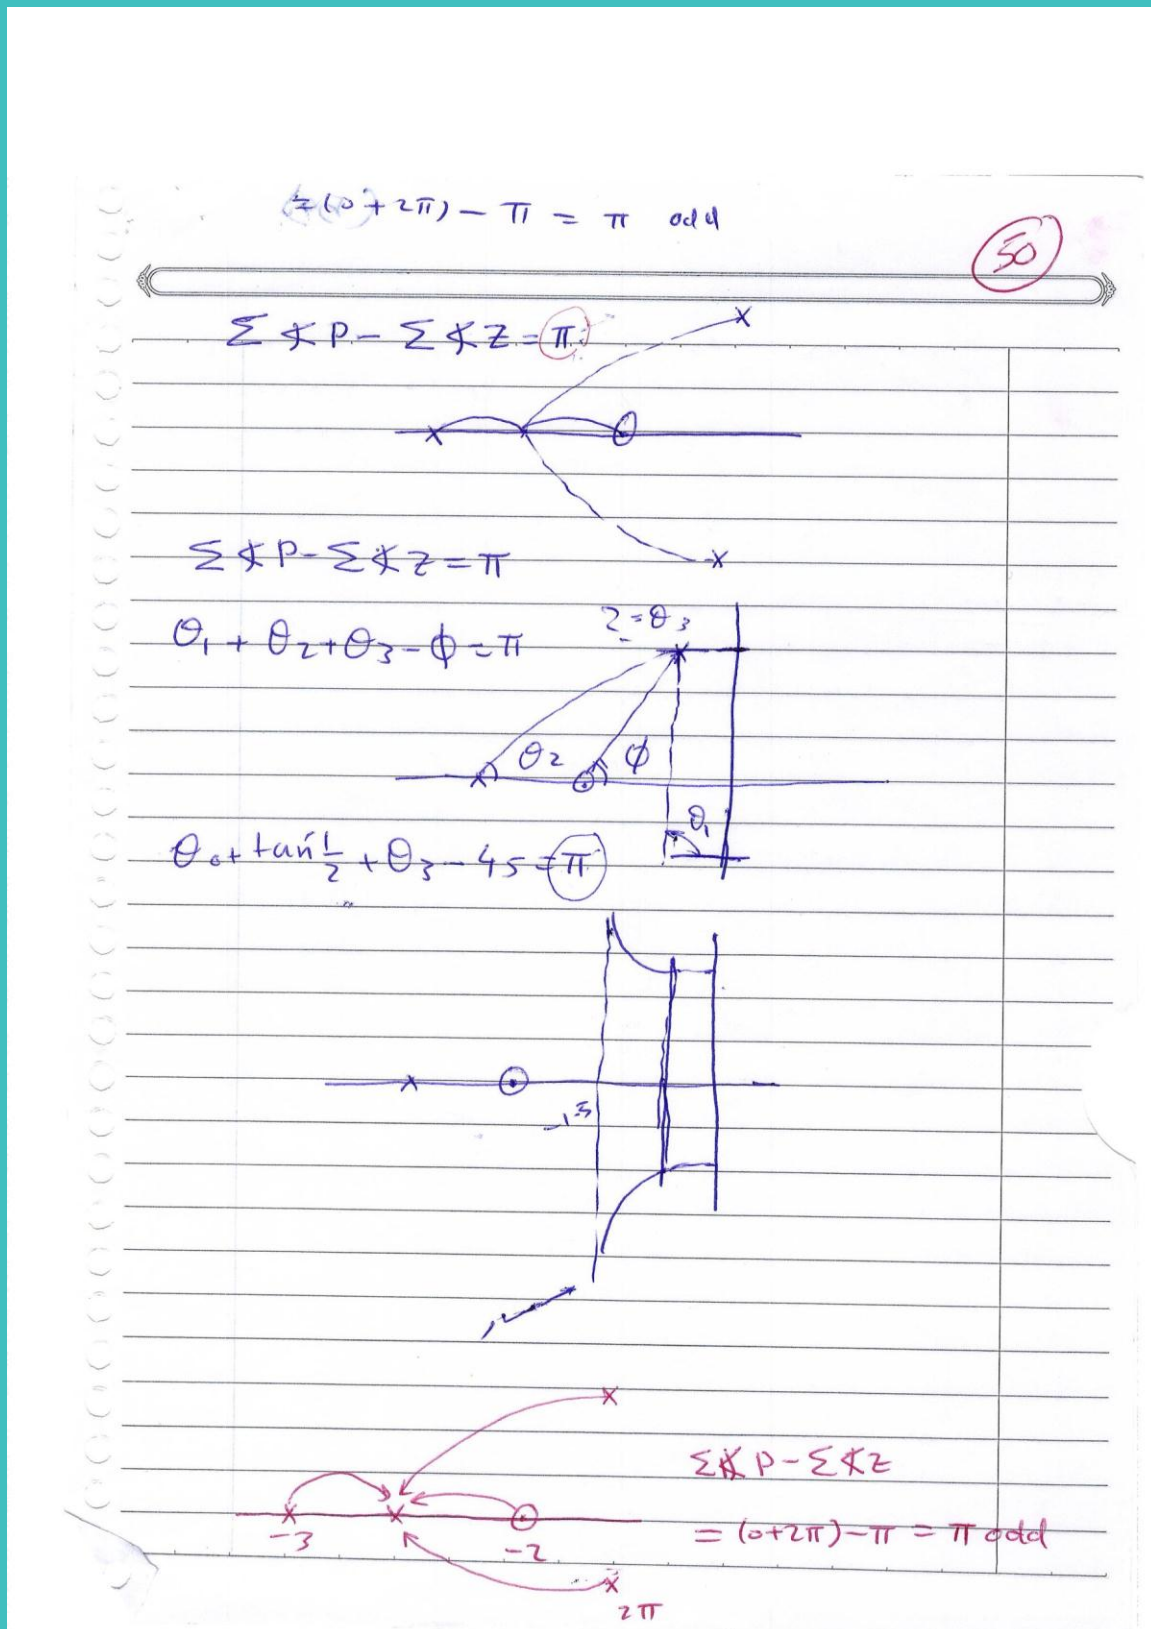 =(0+2π) - π = π odd
50
Σ∡P - Σ∡Z = π
Σ∡P - Σ∡Z = π
θ₁ + θ₂ + θ₃ - φ = π
? = θ₃
θ₂
φ
θ₁
tan⁻¹ 1/2 + θ₃ - 45 = π
Σ∡P - Σ∡Z
= (0+2π) - π = π odd
-3
-2
2π